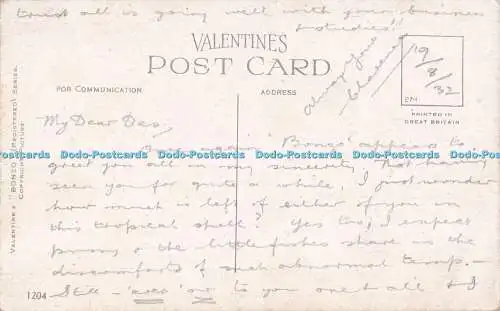 trust all is going well with your business
& studies!!
VALENTINES
POST CARD
FOR COMMUNICATION
ADDRESS
19/8/32
PRINTED IN
GREAT BRITAIN
VALENTINE'S "BONZO" (REGISTERED) SERIES.
COPYRIGHT PICTURE
Always yours
My Dear Des,
Once again "Bonzo" appears to
Dodo-Postcards Dodo-Postcards Dodo-Postcards Dodo-Postcards
greet you all in my sincerity. Not having
seen you for quite a while, I just wonder
how much is left of either of you in
this tropical spell? Yes too, I expect
& the little fishes share in the
discomforts of such abnormal temp.—
1204
Still - to you one & all & I